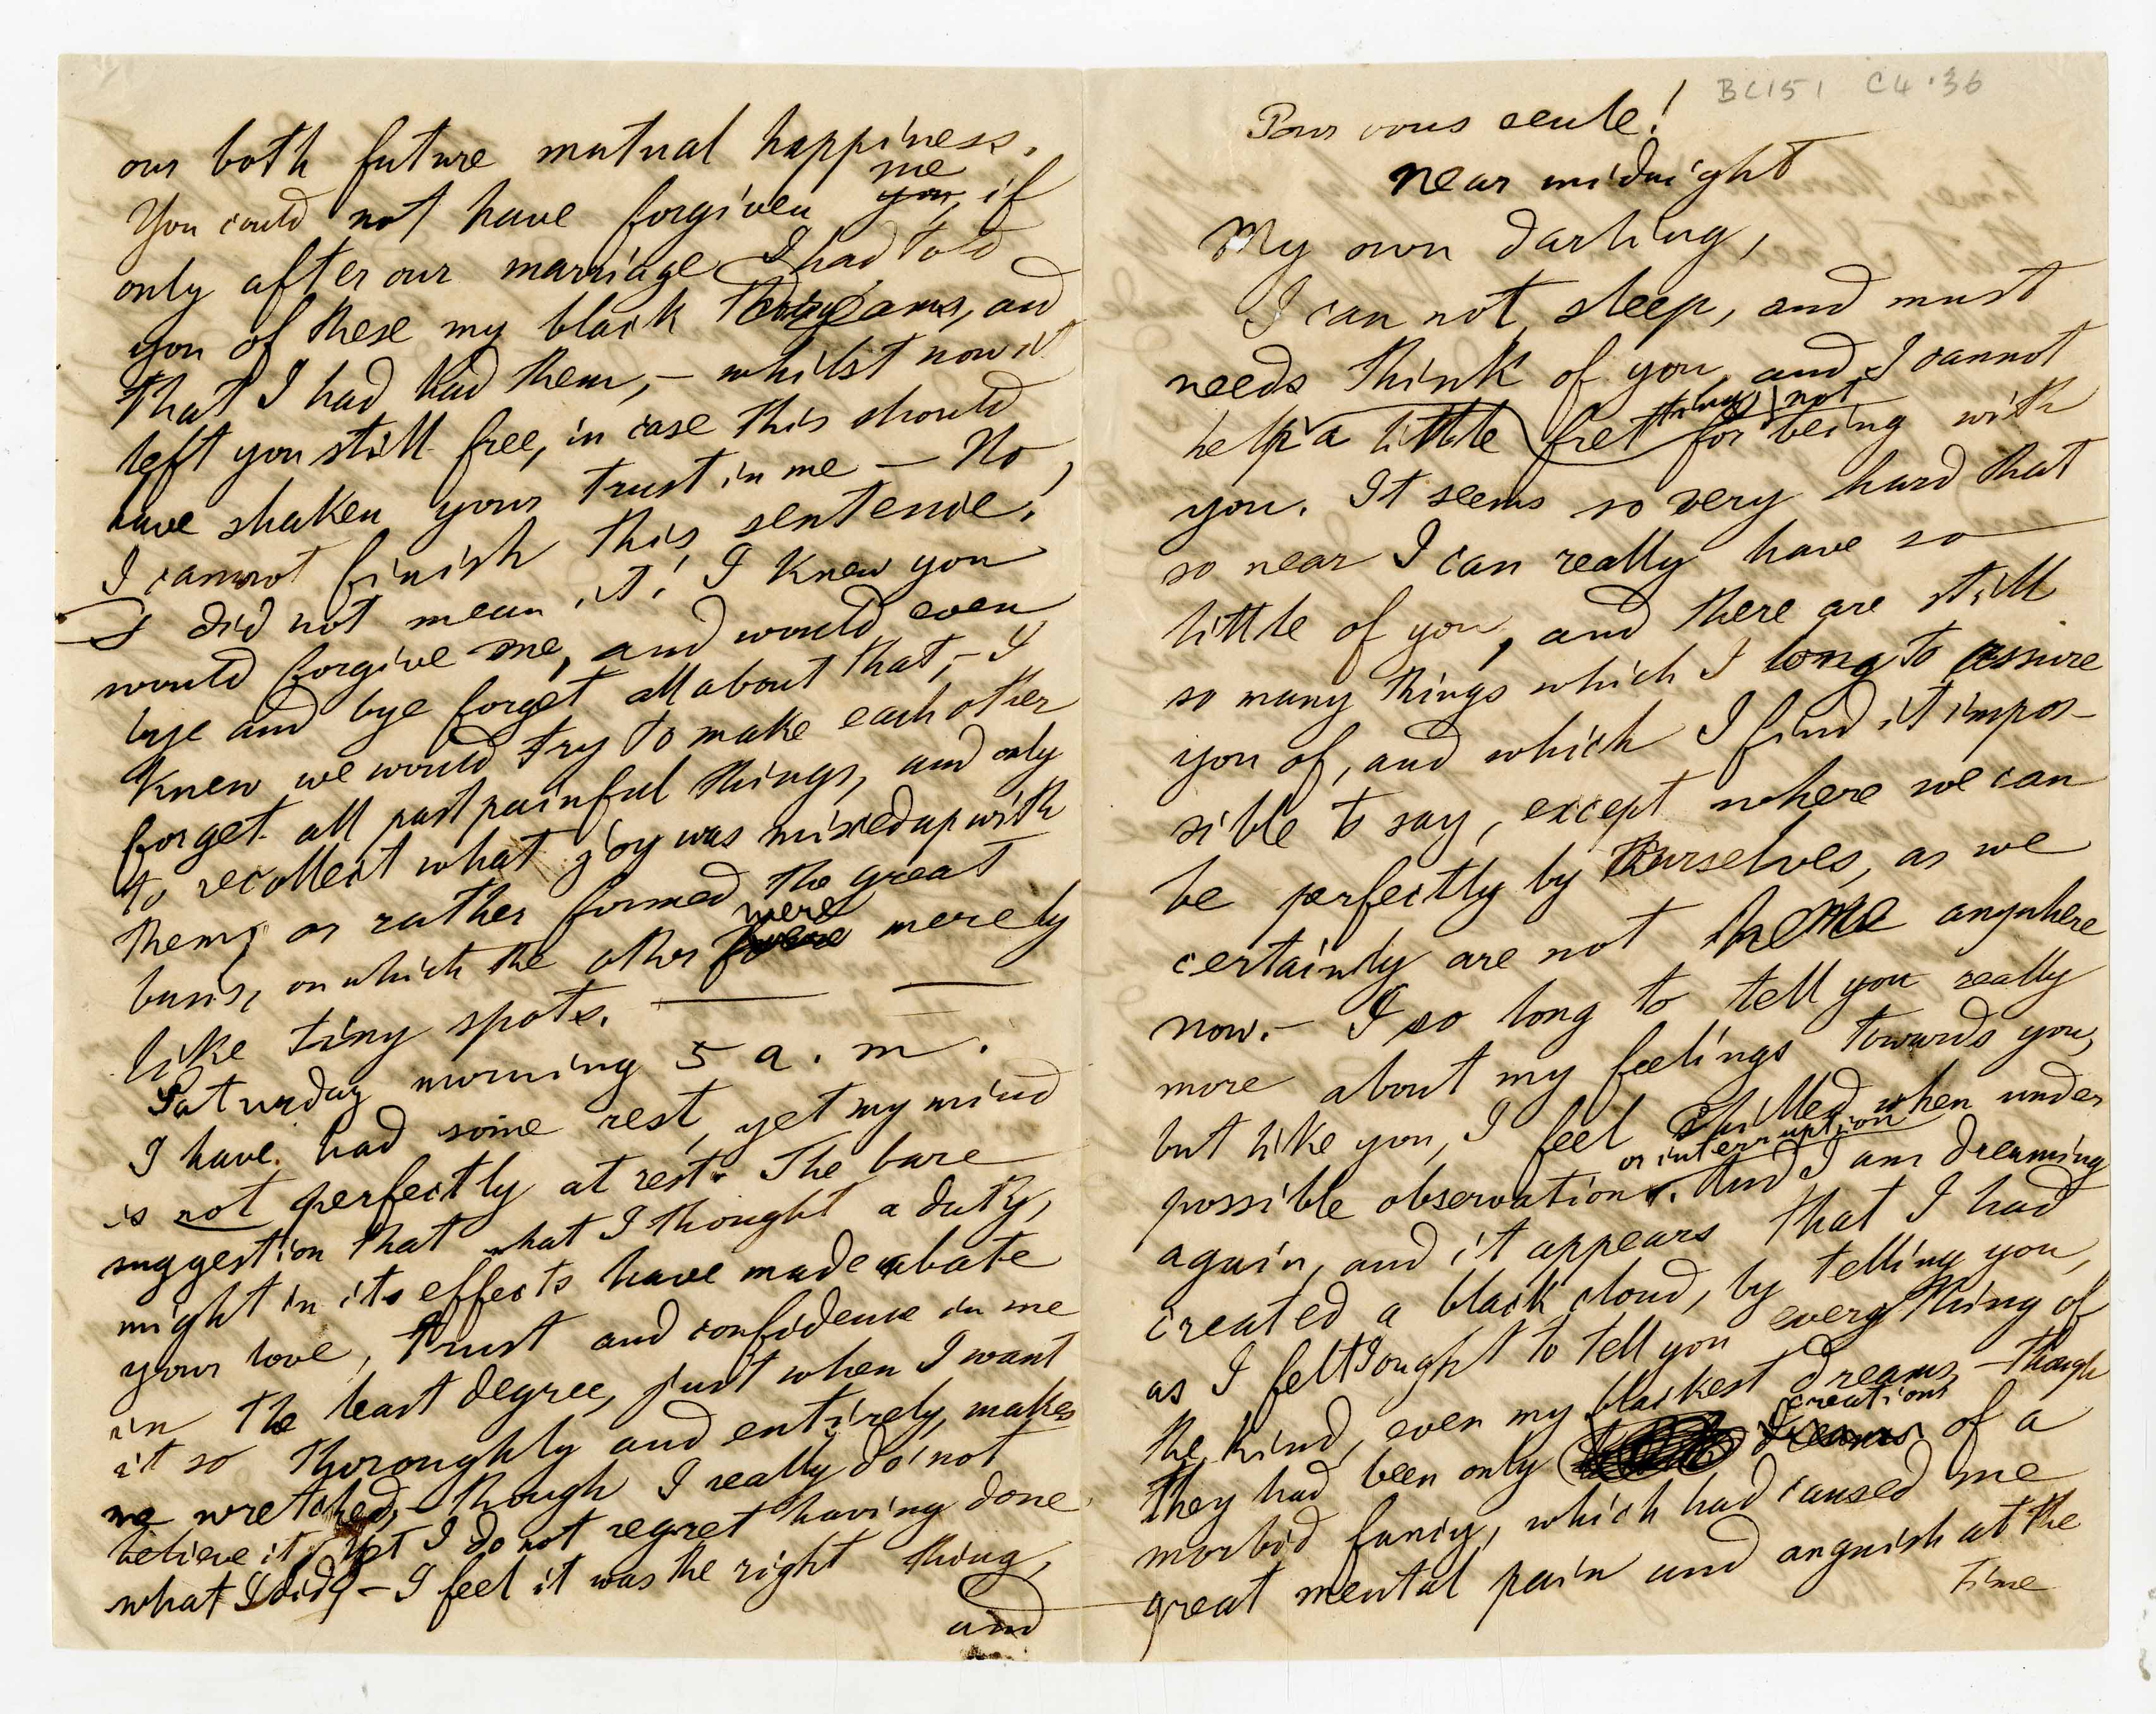 BC151 C4.36
Pour vous seule!
Near midnight
My own darling,
I can not sleep, and must
needs think of you, and I cannot
help a little fretting for not being with
you. It seems so very hard that
so near I can really have so
little of you, and there are still
so many things which I long to assure
you of, and which I find it impos-
sible to say, except where we can
be perfectly by ourselves, as we
certainly are not anywhere
now. – I so long to tell you really
more about my feelings towards you,
but like you, I feel chilled when under
possible observation or interruption. And I am dreaming
again, and it appears that I had
created a black cloud, by telling you,
as I felt I ought to tell you everything of
the kind, even my blackest dreams, – though
they had been only creations of a
morbid fancy, which had caused me
great mental pain and anguish at the
time
our both future mutual happiness.
You could not have forgiven me, if
only after our marriage I had told
you of these my black dreams, and
that I had had them, – whilst now it
left you still free, in case this should
have shaken your trust in me – No,
I cannot finish this sentence!
I did not mean it! I knew you
would forgive me, and would even
bye and bye forget all about that, – I
knew we would try to make each other
forget all past painful things, and only
to recollect what joy was mixed up with
them, or rather formed the great
basis, on which the other were merely
like tiny spots. —
Saturday morning 5 a.m.
I have had some rest, yet my mind
is not perfectly at rest. The bare
suggestion that what I thought a duty,
might in its effects have made abate
your love, trust and confidence in me
in the least degree, just when I want
it so thoroughly and entirely, makes
me wretched, – though I really do not
believe it, yet I do not regret having done
what I did, – I feel it was the right thing,
and